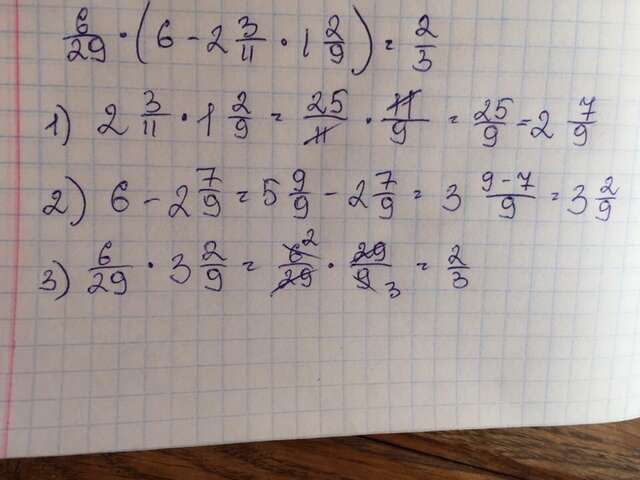 6/29 · (6 - 2 3/11 · 1 2/9) = 2/3
1) 2 3/11 · 1 2/9 = 25/11 · 11/9 = 25/9 = 2 7/9
2) 6 - 2 7/9 = 5 9/9 - 2 7/9 = 3 9-7/9 = 3 2/9
3) 6/29 · 3 2/9 = 6 2/29 · 29/9 3 = 2/3